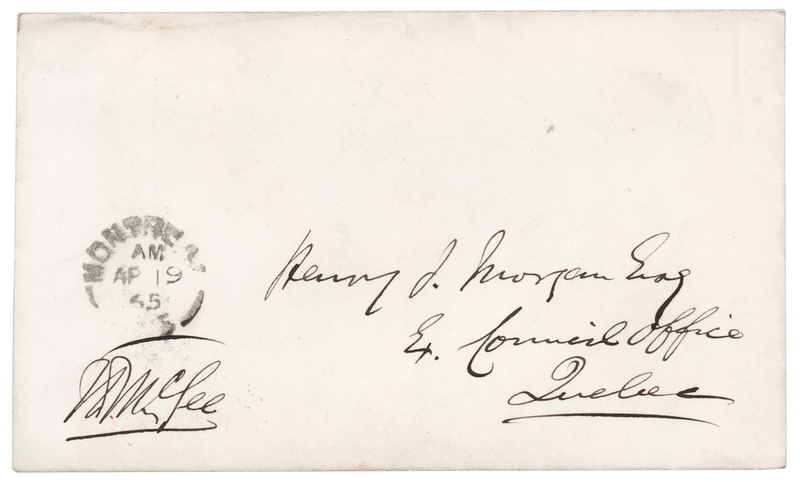 MONTREAL
AM
AP 19
65
Henry J. Morgan Esq
Ex. Council Office
Quebec
McGee